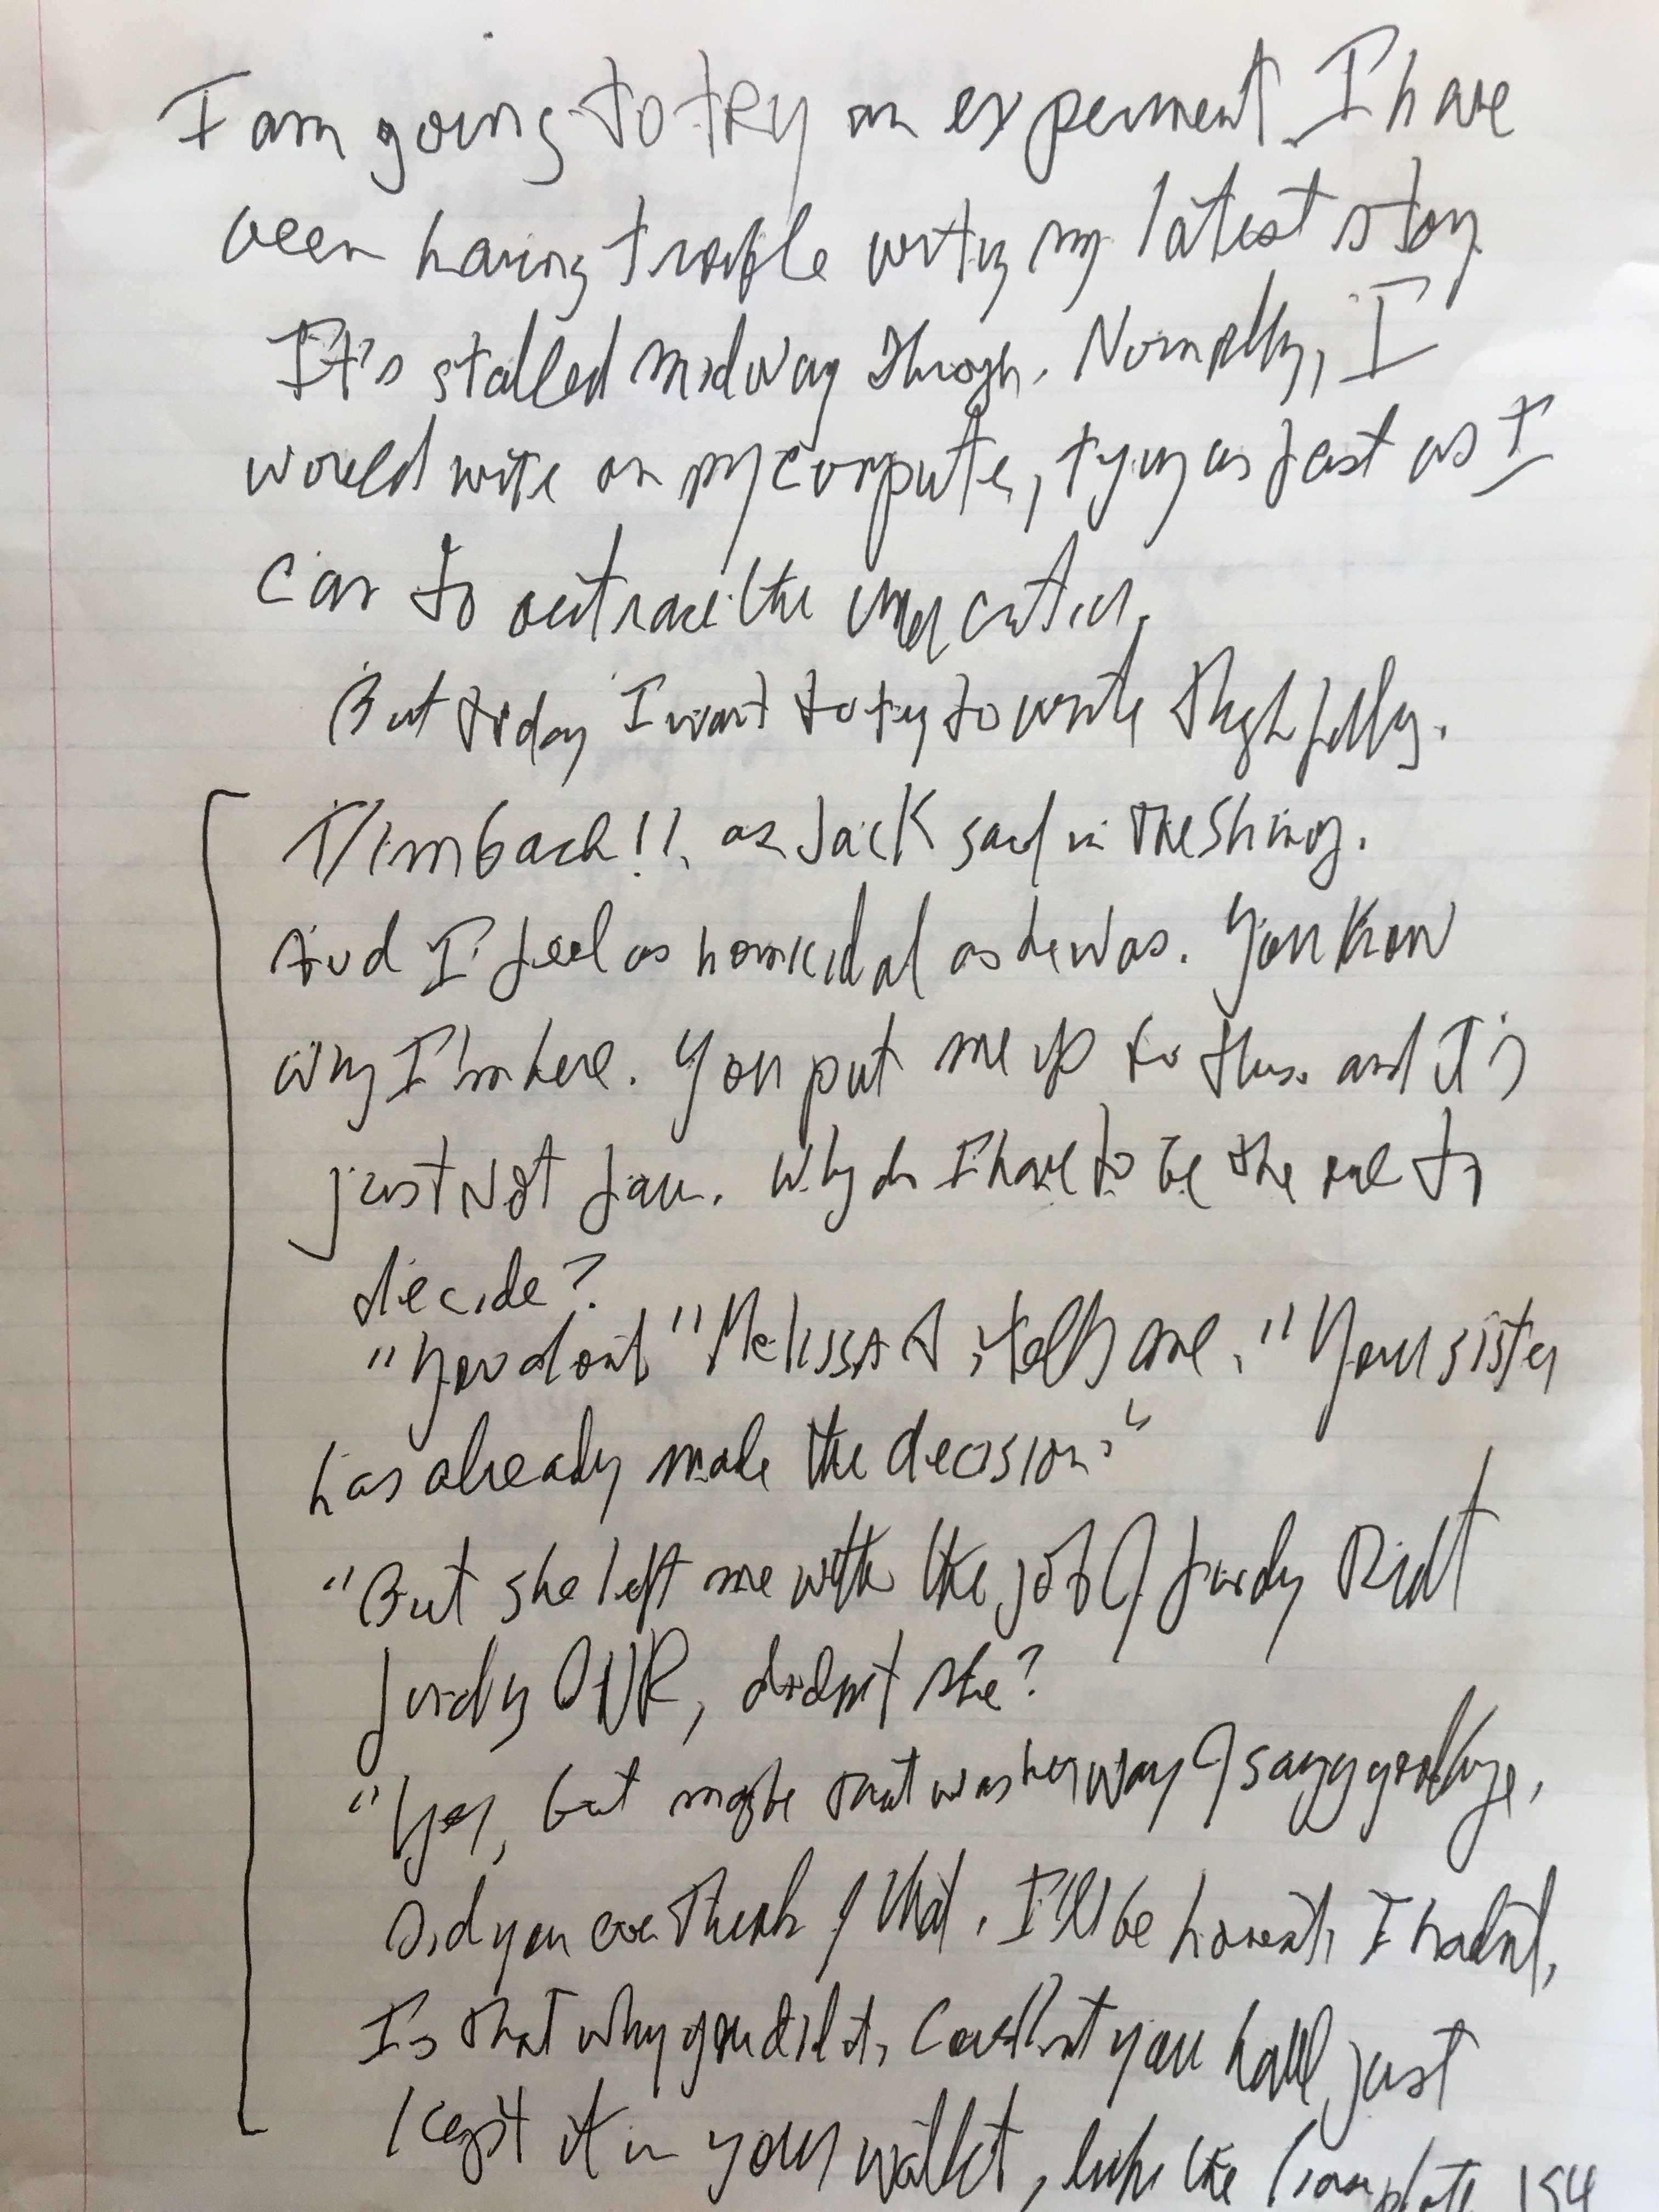 I am going to try an experiment I have
been having trouble writing my latest story
It's stalled midway through. Normally, I
would write on my computer, typing as fast as I
can to outrace the inner critic.
But today I want to try to write thoughtfully.
I'm back!!, as Jack said in the Shining.
And I feel as homicidal as he was. You know
why I'm here. You put me up to this. and it's
just not fair. Why do I have to be the one to
decide?
"You don't" Melissa tells me. "Your sister
has already made the decision."
"But she left me with the job of finding that
DNR, didn't she?
"Yes, but maybe that was her way of saying goodbye,
Did you ever think of that. I'll be honest, I hadn't,
Is that why you did it, Couldn't you have just
kept it in your wallet, like the